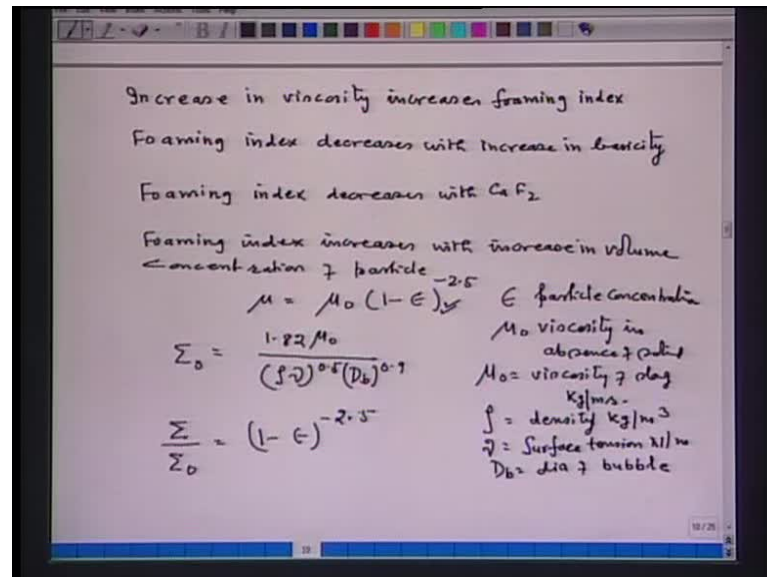 Increase in viscosity increases foaming index
Foaming index decreases with increase in basicity
Foaming index decreases with CaF2
Foaming index increases with increase in volume
concentration of particle
μ = μ₀ (1-ϵ)^-2.5
ϵ particle concentration
μ₀ viscosity in
absence of solid
Σ₀ = 1.82 μ₀ / (ρν)^0.5 (Db)^0.9
μ₀ = viscosity of slag
kg/ms.
ρ = density kg/m³
ν = Surface tension N/m
Db = dia of bubble
Σ/Σ₀ = (1-ϵ)^-2.5
10/25
10